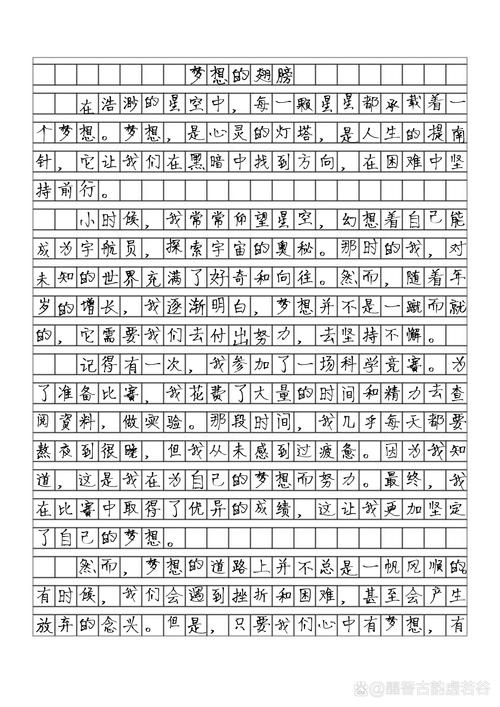 梦想的翅膀
在浩渺的星空中，每一颗星星都承载着一
个梦想。梦想，是心灵的灯塔，是人生的提南
针，它让我们在黑暗中找到方向，在困难中坚
持前行。
小时候，我常常仰望星空，幻想着自己能
成为宇航员，探索宇宙的奥秘。那时的我，对
未知的世界充满了好奇和向往。然而，随着年
岁的增长，我逐渐明白，梦想并不是一蹴而就
的，它需要我们去付出努力，去坚持不懈。
记得有一次，我参加了一场科学竞赛。为
了准备比赛，我花费了大量的时间和精力去查
阅资料，做实验。那段时间，我几乎每天都要
熬夜到很晚，但我从未感到过疲惫。因为我知
道，这是我在为自己的梦想而努力。最终，我
在比赛中取得了优异的成绩，这让我更加坚定
了自己的梦想。
然而，梦想的道路上并不总是一帆风顺的
有时候，我们会遇到挫折和困难，甚至会产生
放弃的念头。但是，只要我们心中有梦想，有